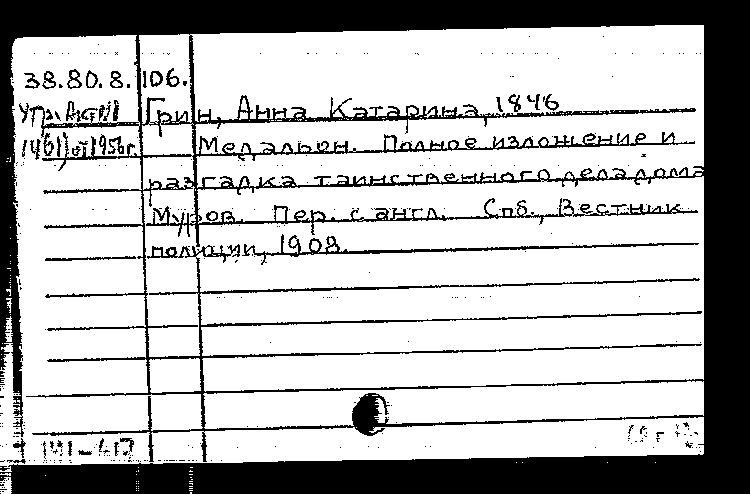 38.80.8.106.
Грин, Анна Катарина, 1846
14(61) от 1956г. Медальон. Полное изложение и
разгадка таинственного дела дома
Муров. Пер. с англ. Спб., Вестник
полиции, 1908.
141-617